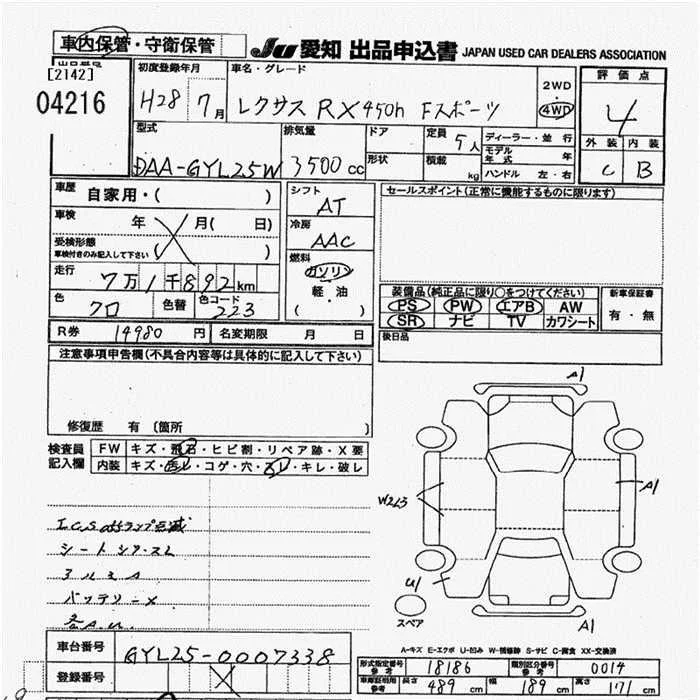 車内保管・守衛保管
JU 愛知 出品申込書 JAPAN USED CAR DEALERS ASSOCIATION
出品番号 [2142] 04216
初度登録年月 H28 7月
車名・グレード レクサス RX450h Fスポーツ
2WD ・ 4WD
評価点 4
外装 内装
C B
型式 DAA-GYL25W
排気量 3500cc
ドア
形状
定員 5人
積載 kg
ディーラー・並行
モデル年式 年
ハンドル 左・右
車歴 自家用・( )
車検 年 月( 日)
受検形態
車検付きのみ記入して下さい ( )
走行 7万1千892km
色 クロ 色替 色コード 223
シフト AT
冷房 AAC
燃料 ガソリン
軽・油
( )
セールスポイント(正常に機能するものに限ります)
装備品(純正品に限り○をつけてください)
PS PW エアB AW
SR ナビ TV カワシート
新車保証書
有・無
後日品
R券 14980円 名変期限 月 日
注意事項申告欄(不具合内容等は具体的に記入して下さい)
修復歴 有 〔箇所 〕
検査員記入欄
FW キズ・飛石・ヒビ割・リペア跡・X要
内装 キズ・汚レ・コゲ・穴・スレ・キレ・破レ
シート シワ・スレ
バッテリーX
A1
A1
W2L3
U1
スペア
A1
A-キズ E-エクボ U-凹み W-補修跡 S-サビ C-腐食 XX-交換済
車台番号 GYL25-0007338
登録番号 X
型式指定番号 参考 18186 類別区分番号 参考 0014
車庫証明用 参考 長さ 489cm 幅 189cm 高さ 171cm